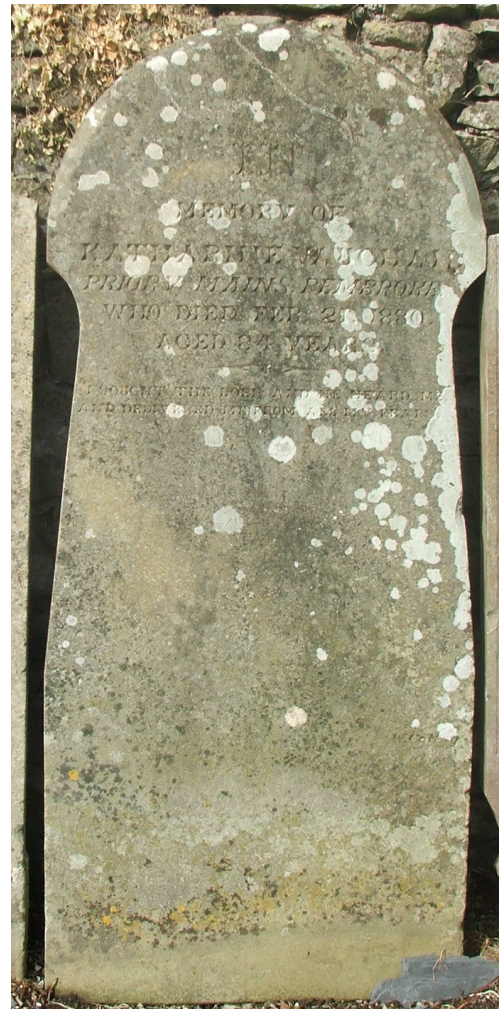 IN
MEMORY OF
KATHARINE VAUGHAN
PRIORY MAINS, PEMBROKE
WHO DIED FEB. 21, 1880.
AGED 84 YEARS.
"I SOUGHT THE LORD AND HE HEARD ME
AND DELIVERED ME FROM ALL MY FEARS."